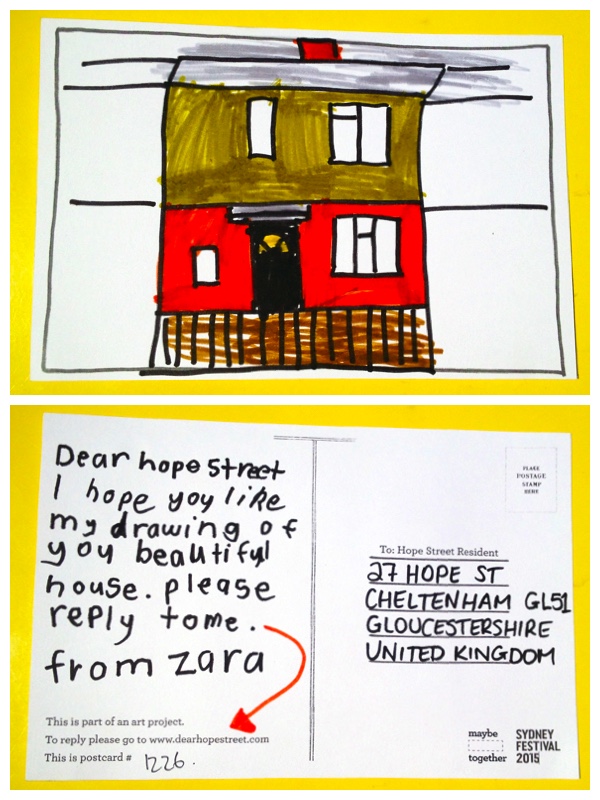 Dear hope street
I hope you like
my drawing of
you beautiful
house. please
reply to me.
from zara
This is part of an art project.
To reply please go to www.dearhopestreet.com
This is postcard # 1226.
PLACE
POSTAGE
STAMP
HERE
To: Hope Street Resident
27 HOPE ST
CHELTENHAM GL51
GLOUCESTERSHIRE
UNITED KINGDOM
maybe
together
SYDNEY
FESTIVAL
2015